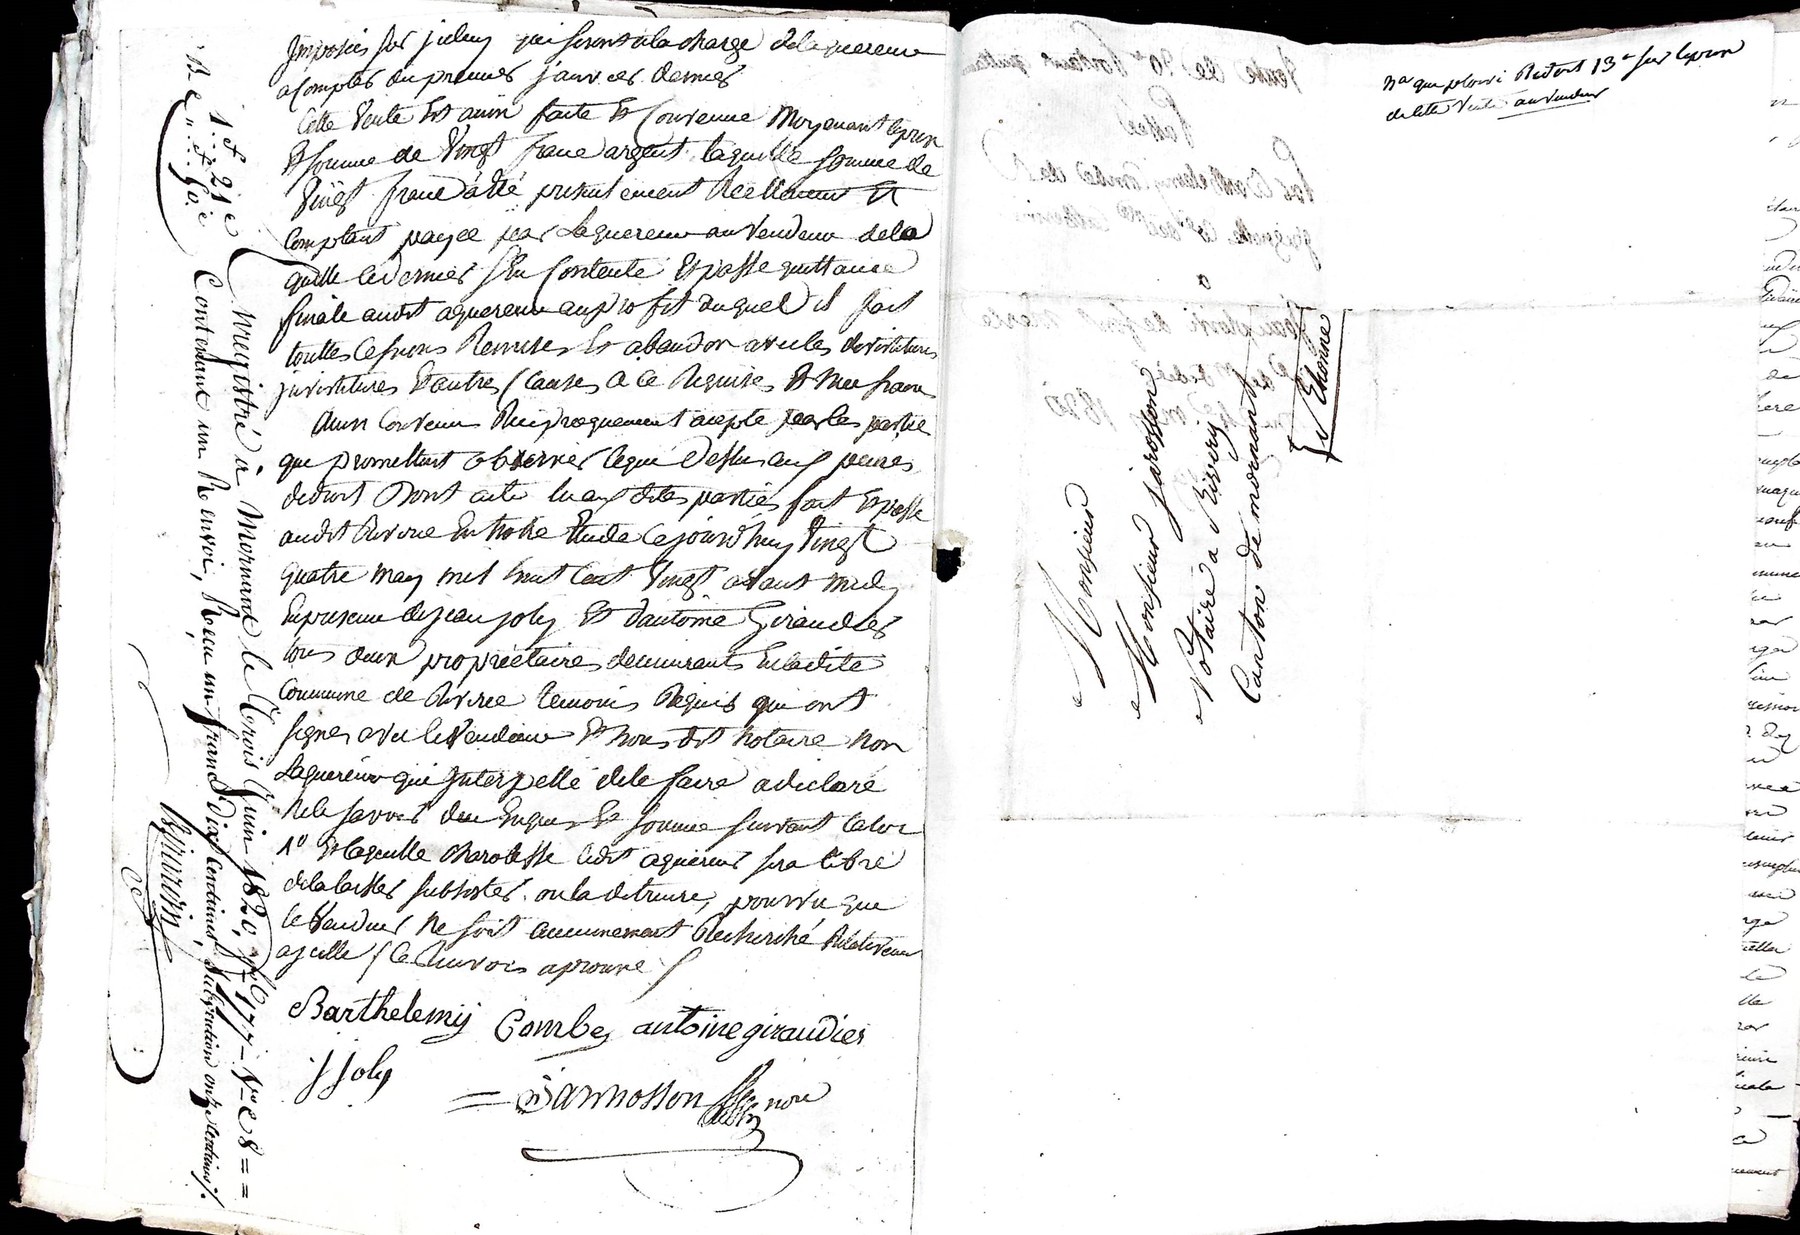 Imposées sur jceluy qui seront a la charge de laquereur
a Compter du premier janvier dernier
Cette Vente Est ainsi faite Et Convenue Moyenant le prix
Et somme de Vingt franc argent laquelle somme de
Vingt franc a été presentement Réellement Et
Comptant payée par Laquereur au Vendeur de la
quelle ce dernier s'en Contente Et passe quittance
finale audit aquereur au profit duquel il fait
touttes Cessions Remises Et abandon avec les devestitures
jnvestitures Et autres Clauses a ce Requises Et Necessaire
Ainsi Convenu Reciproquement acepté par les partie
qui promettent observer ce que Dessus aux peines
de droit Dont acte lu aux dites parties fait Et passé
audit Riverie En notre Etude Cejourd'huy Vingt
quatre may mil huit Cent Vingt avant midy
En presence de jean joly Et d'antoine Giraudier
tous deux propriétaires demeurants En ladite
Commune de Riverie temoins Requis qui ont
signés avec le Vendeur Et Nous dit Notaire Non
Laquereur qui Interpellé de le faire a déclaré
Ne le savoir de ce Enquis Et sommé suivant la loi
1° Et laquelle Charotesse ledit aquereur sera libre
de la laisser subsister ou la detruire, pourvu que
le Vendeur Ne soit aucunement Recherché Relativement
a jcelle / Ce Renvoi aprouvé /
Barthelemy Combes antoine giraudier
J Joly
= Jarrosson nore
Enregistré à Mornant le Trois Juin 1820, fo 177 - Vo C 8 = =
Contenant un Renvoi, Reçu un franc dix centimes, subvention onze centimes /.
1 f 21 c
Bissuardin
Monsieur
Monsieur jarosson
Notaire a Riverie
Canton de mornant
St Ethienne